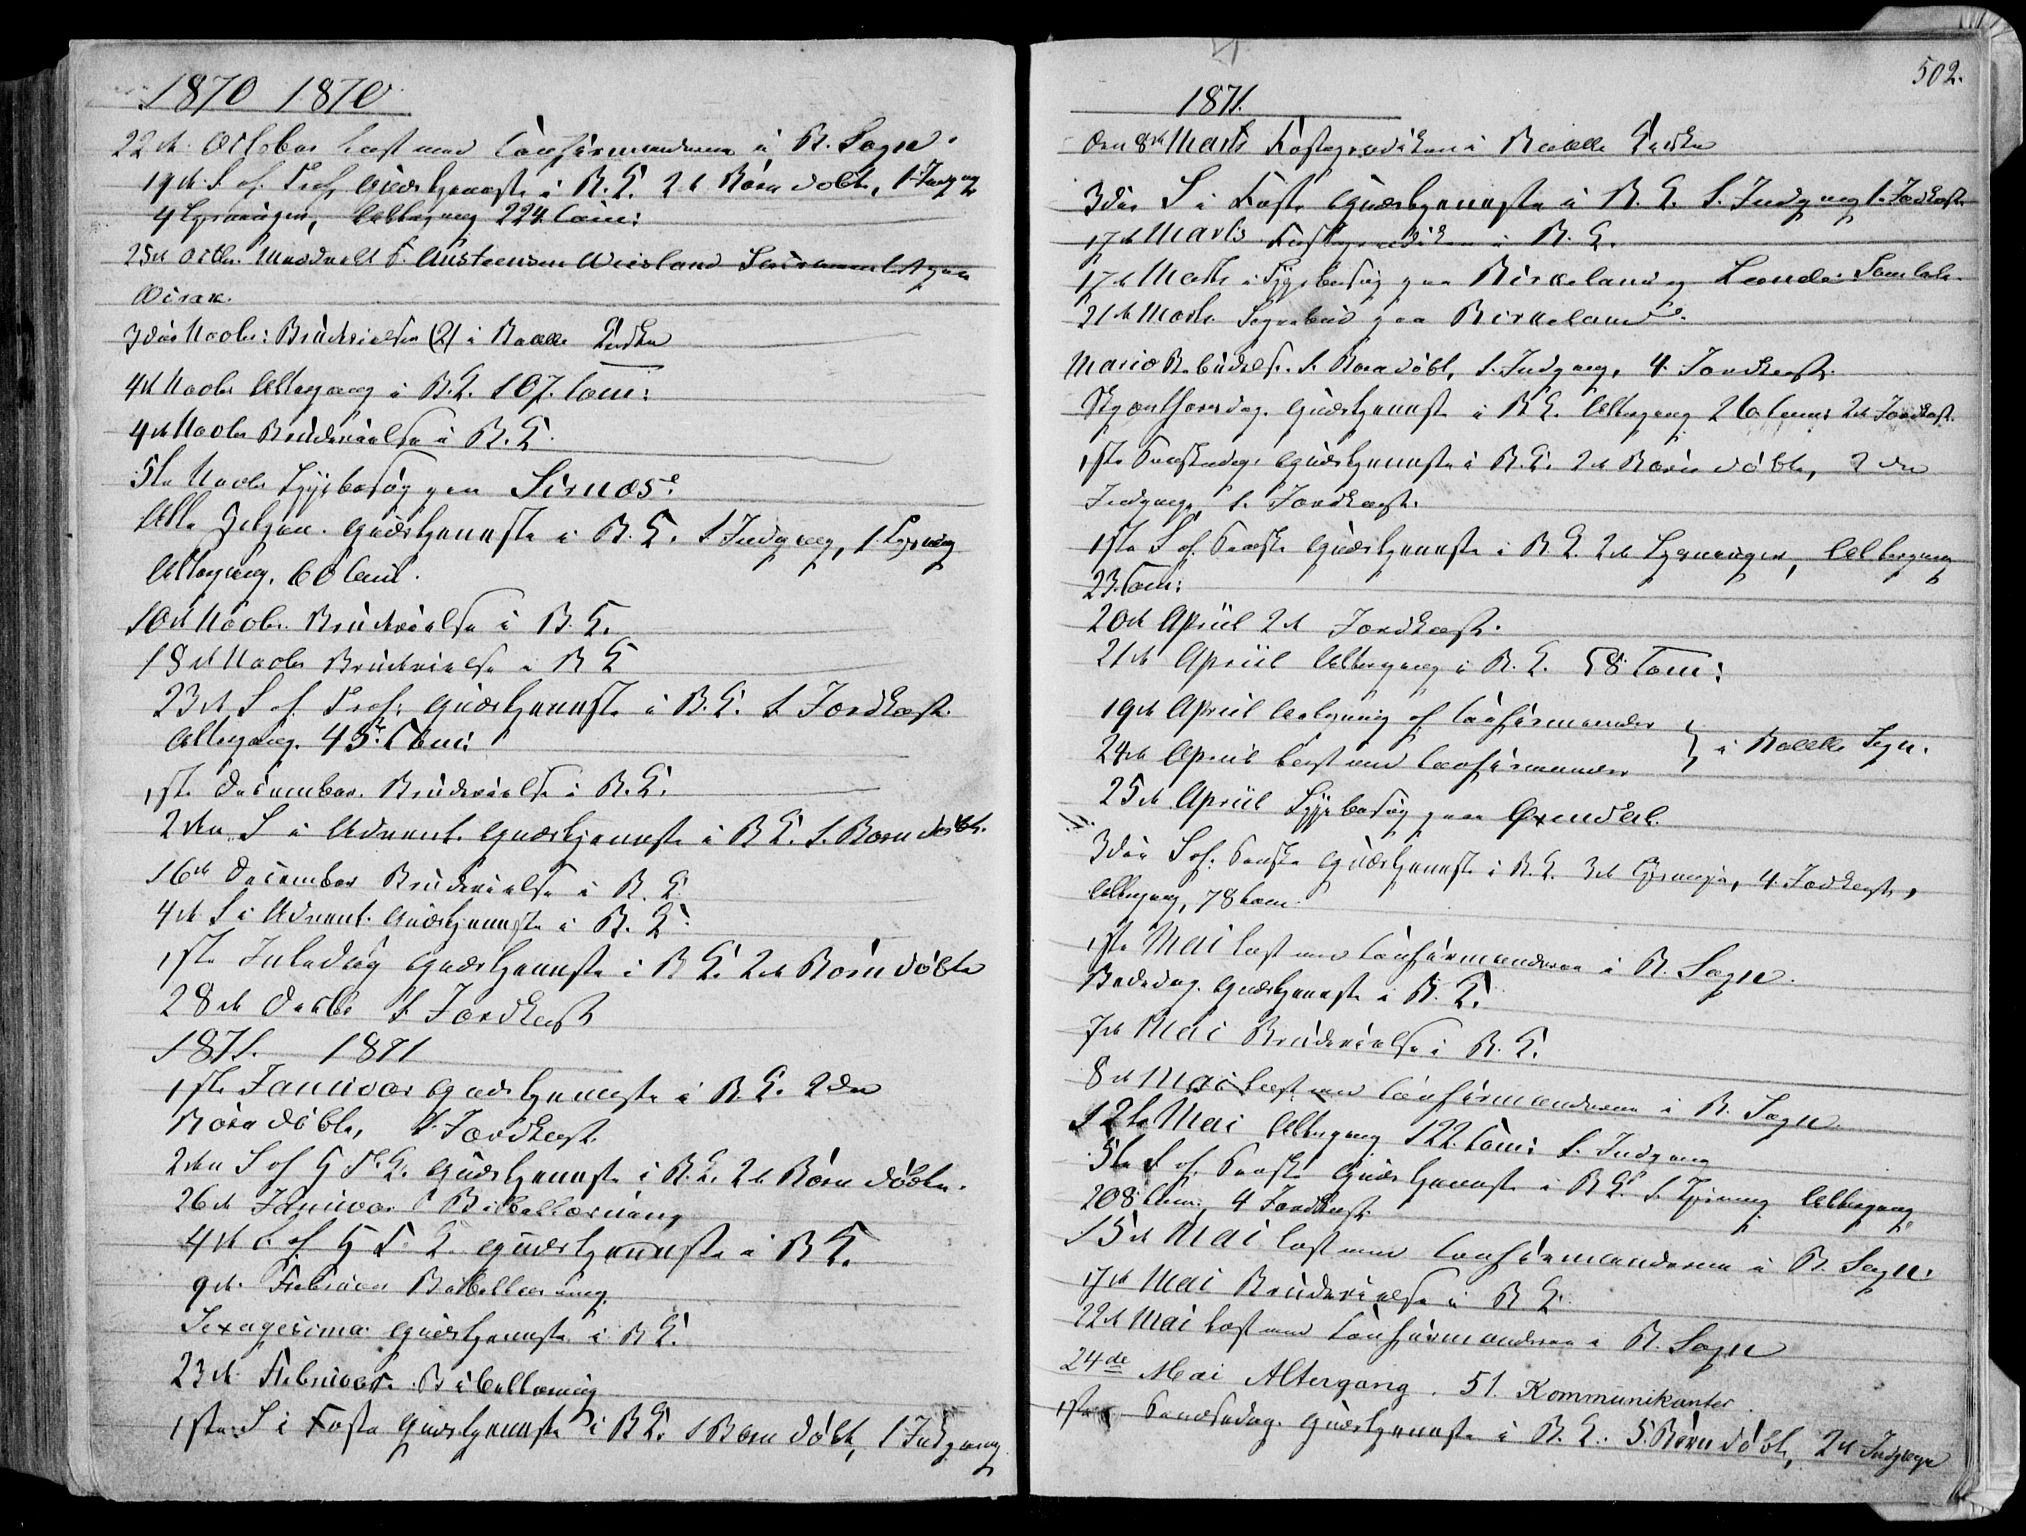 1870 1870
22de October læst med Confirmanderne i B. Sogn.
19de S. ef. Tref. Gudstjeneste i B. K. 2de Børn døbte, 1. Indgang
4 Lysninger, Altergang 224. Com:
25de Octbr. Meddeelt S. Austensen Wiisland Sacramentet paa
3die Novbr: Brudevielser (2) i Bakke Kirke
4de Novbr Altergang i B. K. 107. Com:
4de Novbr Brudevielse i B. K.
5te Novbr Sygebesøg paa Sirnæs.
Alle Helgen. Gudstjeneste i B. K. 1 Indgang, 1 Lysning
Altergang. 60 Com.
10de Novbr. Brudevielse i B. K.
18de Novbr Brudevielse i B K
23de S. ef. Tref. Gudstjeneste i B. K. 1 Jordkast.
Altergang. 45. Com:
1ste December. Brudevielse i B. K.
2den S i Advent. Gudstjeneste i B K. 1. Barn døbt.
16de December Brudevielse i B. K.
4de S i Advent. Gudstjeneste i B. K.
1ste Juledag Gudstjeneste i B K. 2de Børn døbte
28de Decbr 1. Jordkast
1871. 1871
1ste Januar Gudstjeneste i B. K. 2de
Børn døbte, 1. Jordkast.
2den S ef H. T. K. Gudstjeneste i B. K. 2de Børn døbte.
26de Januar Bibellæsning
4de S. ef H. T. K. Gudstjeneste i B K.
9de Februar Bibellæsning.
Sexagesima Gudstjeneste i B K.
23de Februar. Bibellæsning
1ste S i Faste Gudstjeneste i B K. 1 Barn døbt, 1 Indgang.
502.
1871.
Den 8de Marts Fasteprædiken i Bakke Kirke
3die S i Faste Gudstjeneste i B. K. 1. Indgang 1. Jordkast.
17de Marts Fasteprædiken i B. K.
17de Marts i Sygebesøg paa Birkeland og Lande
21de Marts Sognebud paa Birkeland.
Mariæ Bebudelse. 1. Barn døbt, 1. Indgang, 4. Jordkast.
Skjærthorsdag. Gudstjeneste i B K. Altergang 26 Com: 2de Jordkast.
1ste Paaskedag. Gudstjeneste i B. K. 2de Børn døbte, 2den
Indgange, 1. Jordkast.
1ste S. ef. Paaske Gudstjeneste i B K. 2de Lysninger, Altergang
23. Com:
20de April 2de Jordkast.
21de April Altergang i B. K. 58. Com:
19de April Confirmander
24de April læst med Confirmander } i Bakke Sogn.
25de April Sygebesøg paa Øxendal.
3die S. ef. Paaske Gudstjeneste i B. K. 3de Lysninger, 4. Jordkast,
Altergang, 78 Com.
1ste Mai læst med Confirmanderne i B. Sogn.
Bededag. Gudstjeneste i B. K.
7de Mai Brudevielse i B. K.
8de Mai læst med Confirmanderne i B. Sogn.
12te Mai Altergang 122. Com: 1. Indgang
5te S. ef. Paaske Gudstjeneste i B K. 1. Lysning Altergang,
208. Com: 4 Jordkast.
15de Mai læst med Confirmanderne i B. Sogn.
17de Mai Brudevielse i B K.
22de Mai læst med Confirmanderne i B. Sogn
24de Mai Altergang. 51. Kommunikanter.
1ste Pindsedag. Gudstjeneste i B. K. 5. Børn døbt, 2de Indgange